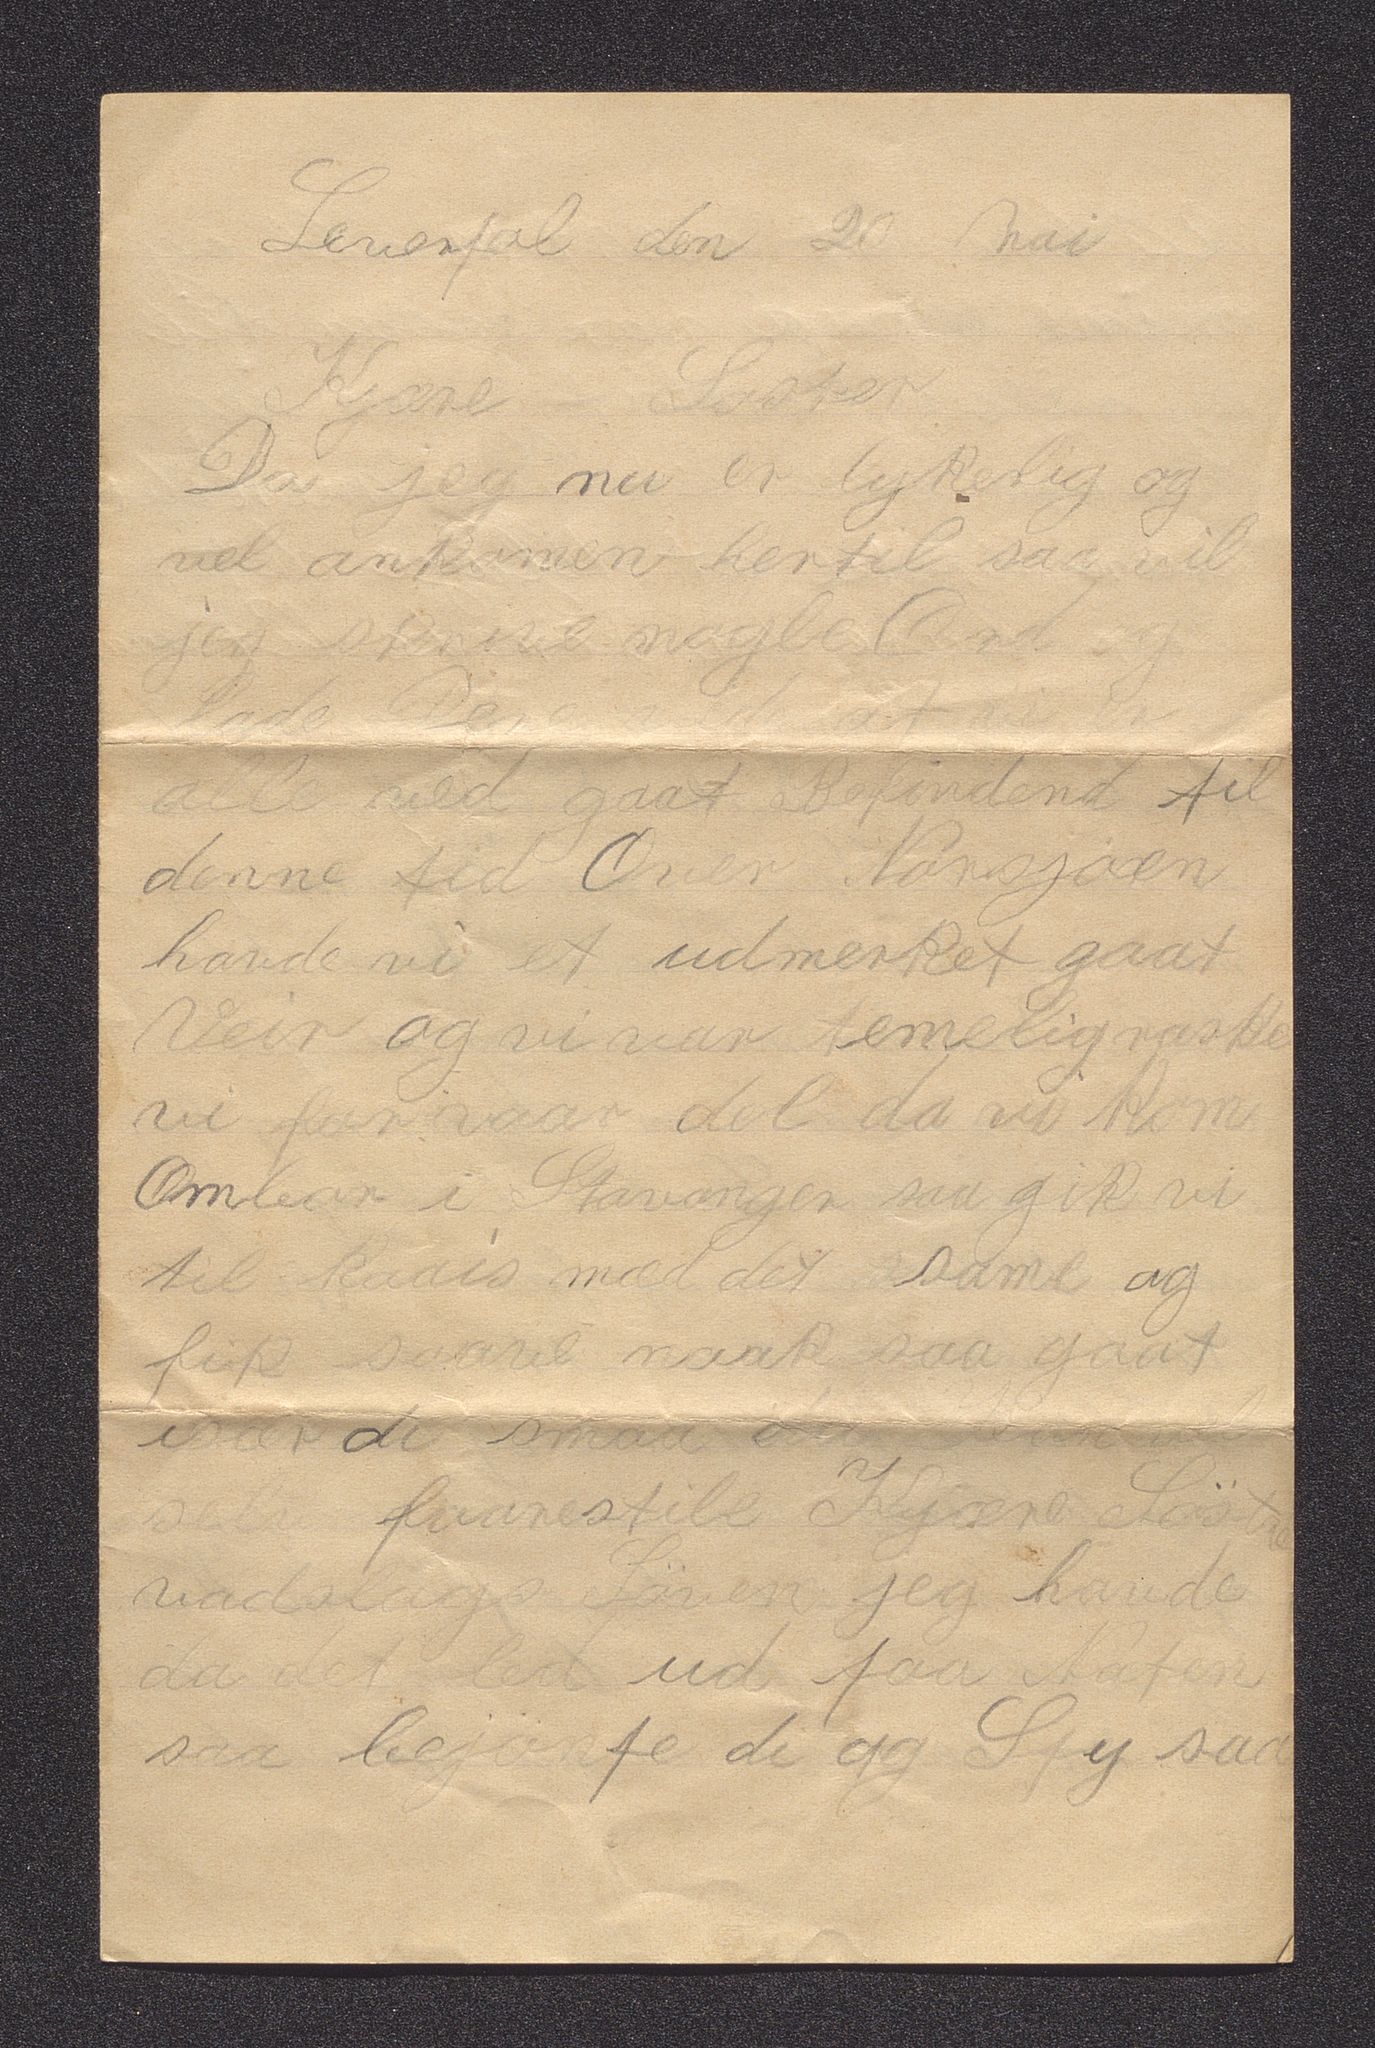 Leverpol den 20 Mai
Kjære Søster
Da jeg nu er lykelig og
vel ankomen hertil saa vil
jeg skrive nogle Ord og
lade Dere vide at vi er
alle ved gaat Befindend til
denne tid Over Norsjøen
havde vi et udmerket gaat
Veir og vi var temelig raske
vi for vaar del da vi kom
Ombor i Stavanger saa gik vi
til kaais med det same og
fik saave naak saa gaat
især de smaa
selv faarestile Kjære Söstre
vadslags Söven jeg havde
da det led ud paa Naten
saa bejönte de og Spy saa